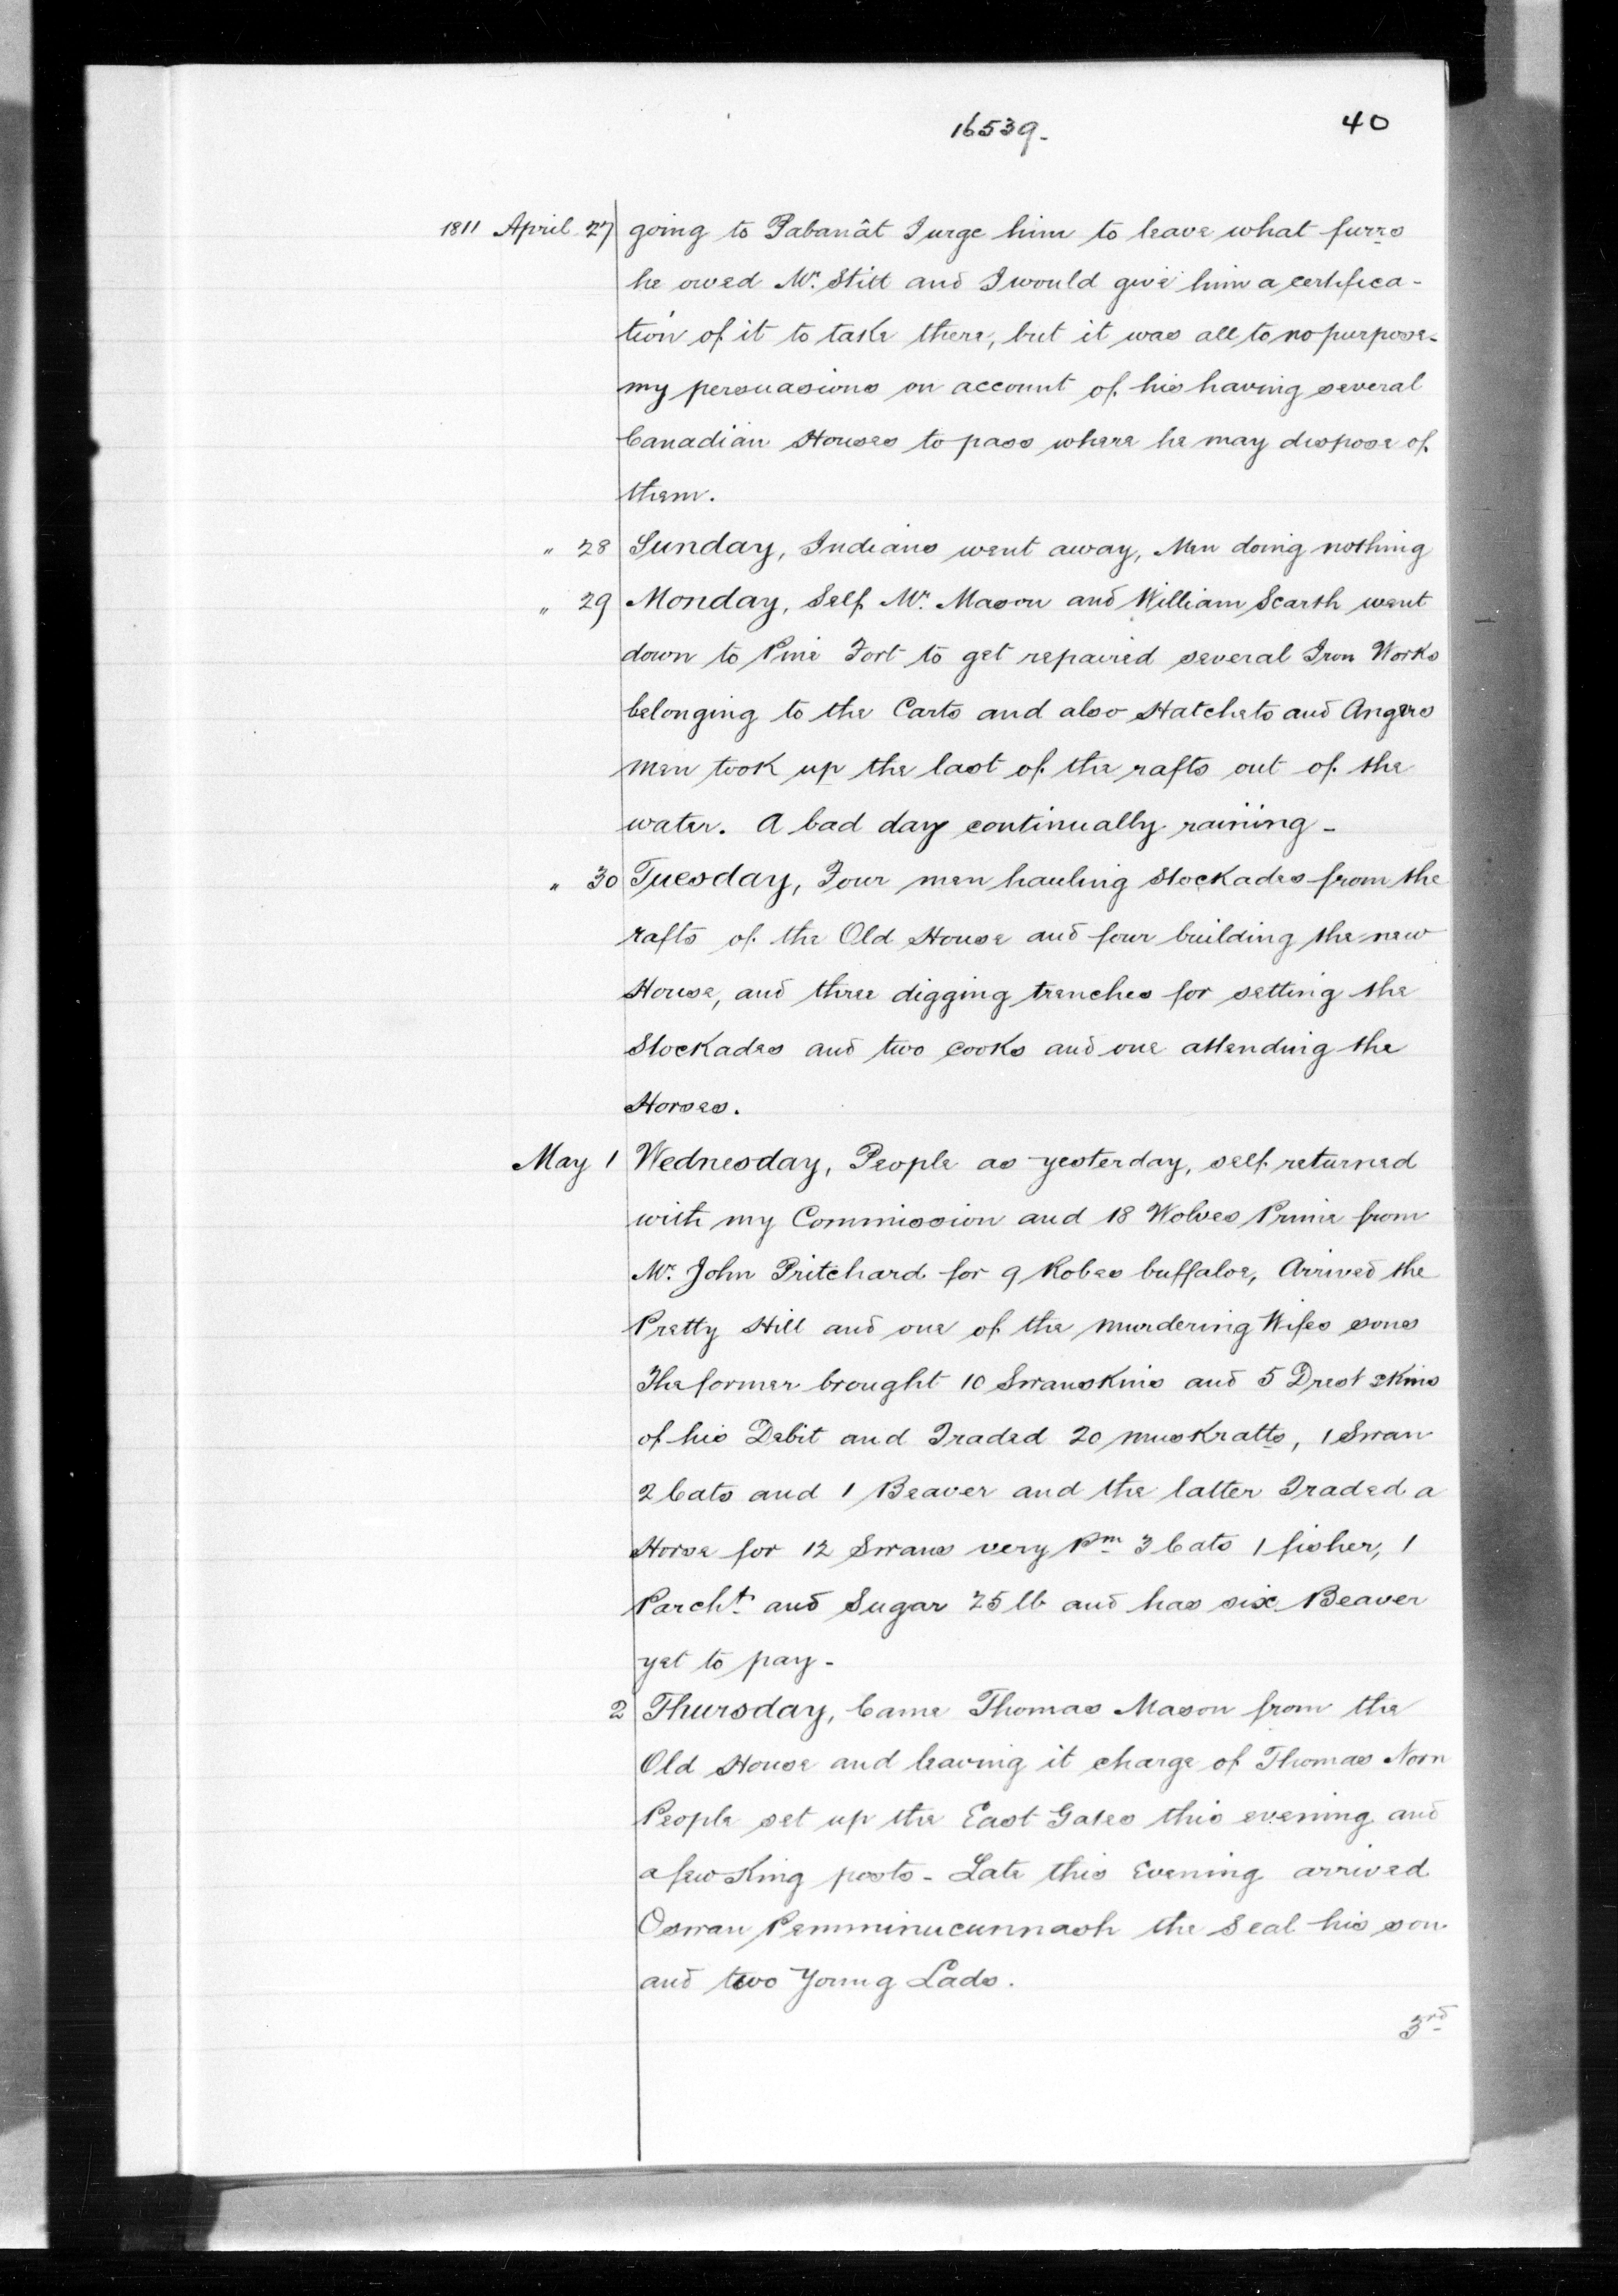 16539. 40
1811 April 27 going to Pabanât I urge him to leave what furrs
he owed Mr. Still and I would give him a certifica-
tion of it to take there, but it was all to no purpose.
my persuasions on account of his having several
Canadian Houses to pass where he may dispose of
them.
" 28 Sunday, Indians went away, Men doing nothing
" 29 Monday, Self Mr. Mason and William Scarth went
down to Pine Fort to get repaired several Iron Works
belonging to the Carts and also Hatchets and Angers
men took up the last of the rafts out of the
water. A bad day continually raining -
" 30 Tuesday, Four men hauling Stockades from the
rafts of the Old House and four building the new
House, and three digging trenches for setting the
Stockades and two cooks and one attending the
Horses.
May 1 Wednesday, People as yesterday, self returned
with my Commission and 18 Wolves Prime from
Mr. John Pritchard for 9 Robes buffaloe, Arrived the
Pretty Hill and one of the murdering Wifes sons
The former brought 10 Swanskins and 5 Drest skins
of his Debit and Traded 20 muskratts, 1 Swan
2 Cats and 1 Beaver and the latter Traded a
Horse for 12 Swans very Pm 3 Cats 1 fisher, 1
Parcht. and Sugar 25 lb and has six Beaver
yet to pay -
2 Thursday, Came Thomas Mason from the
Old House and leaving it charge of Thomas Norn
People set up the East Gates this evening and
a few King posts - Late this Evening arrived
Oswan Pemminucunnash the Seal his son
and two Young Lads.
3rd